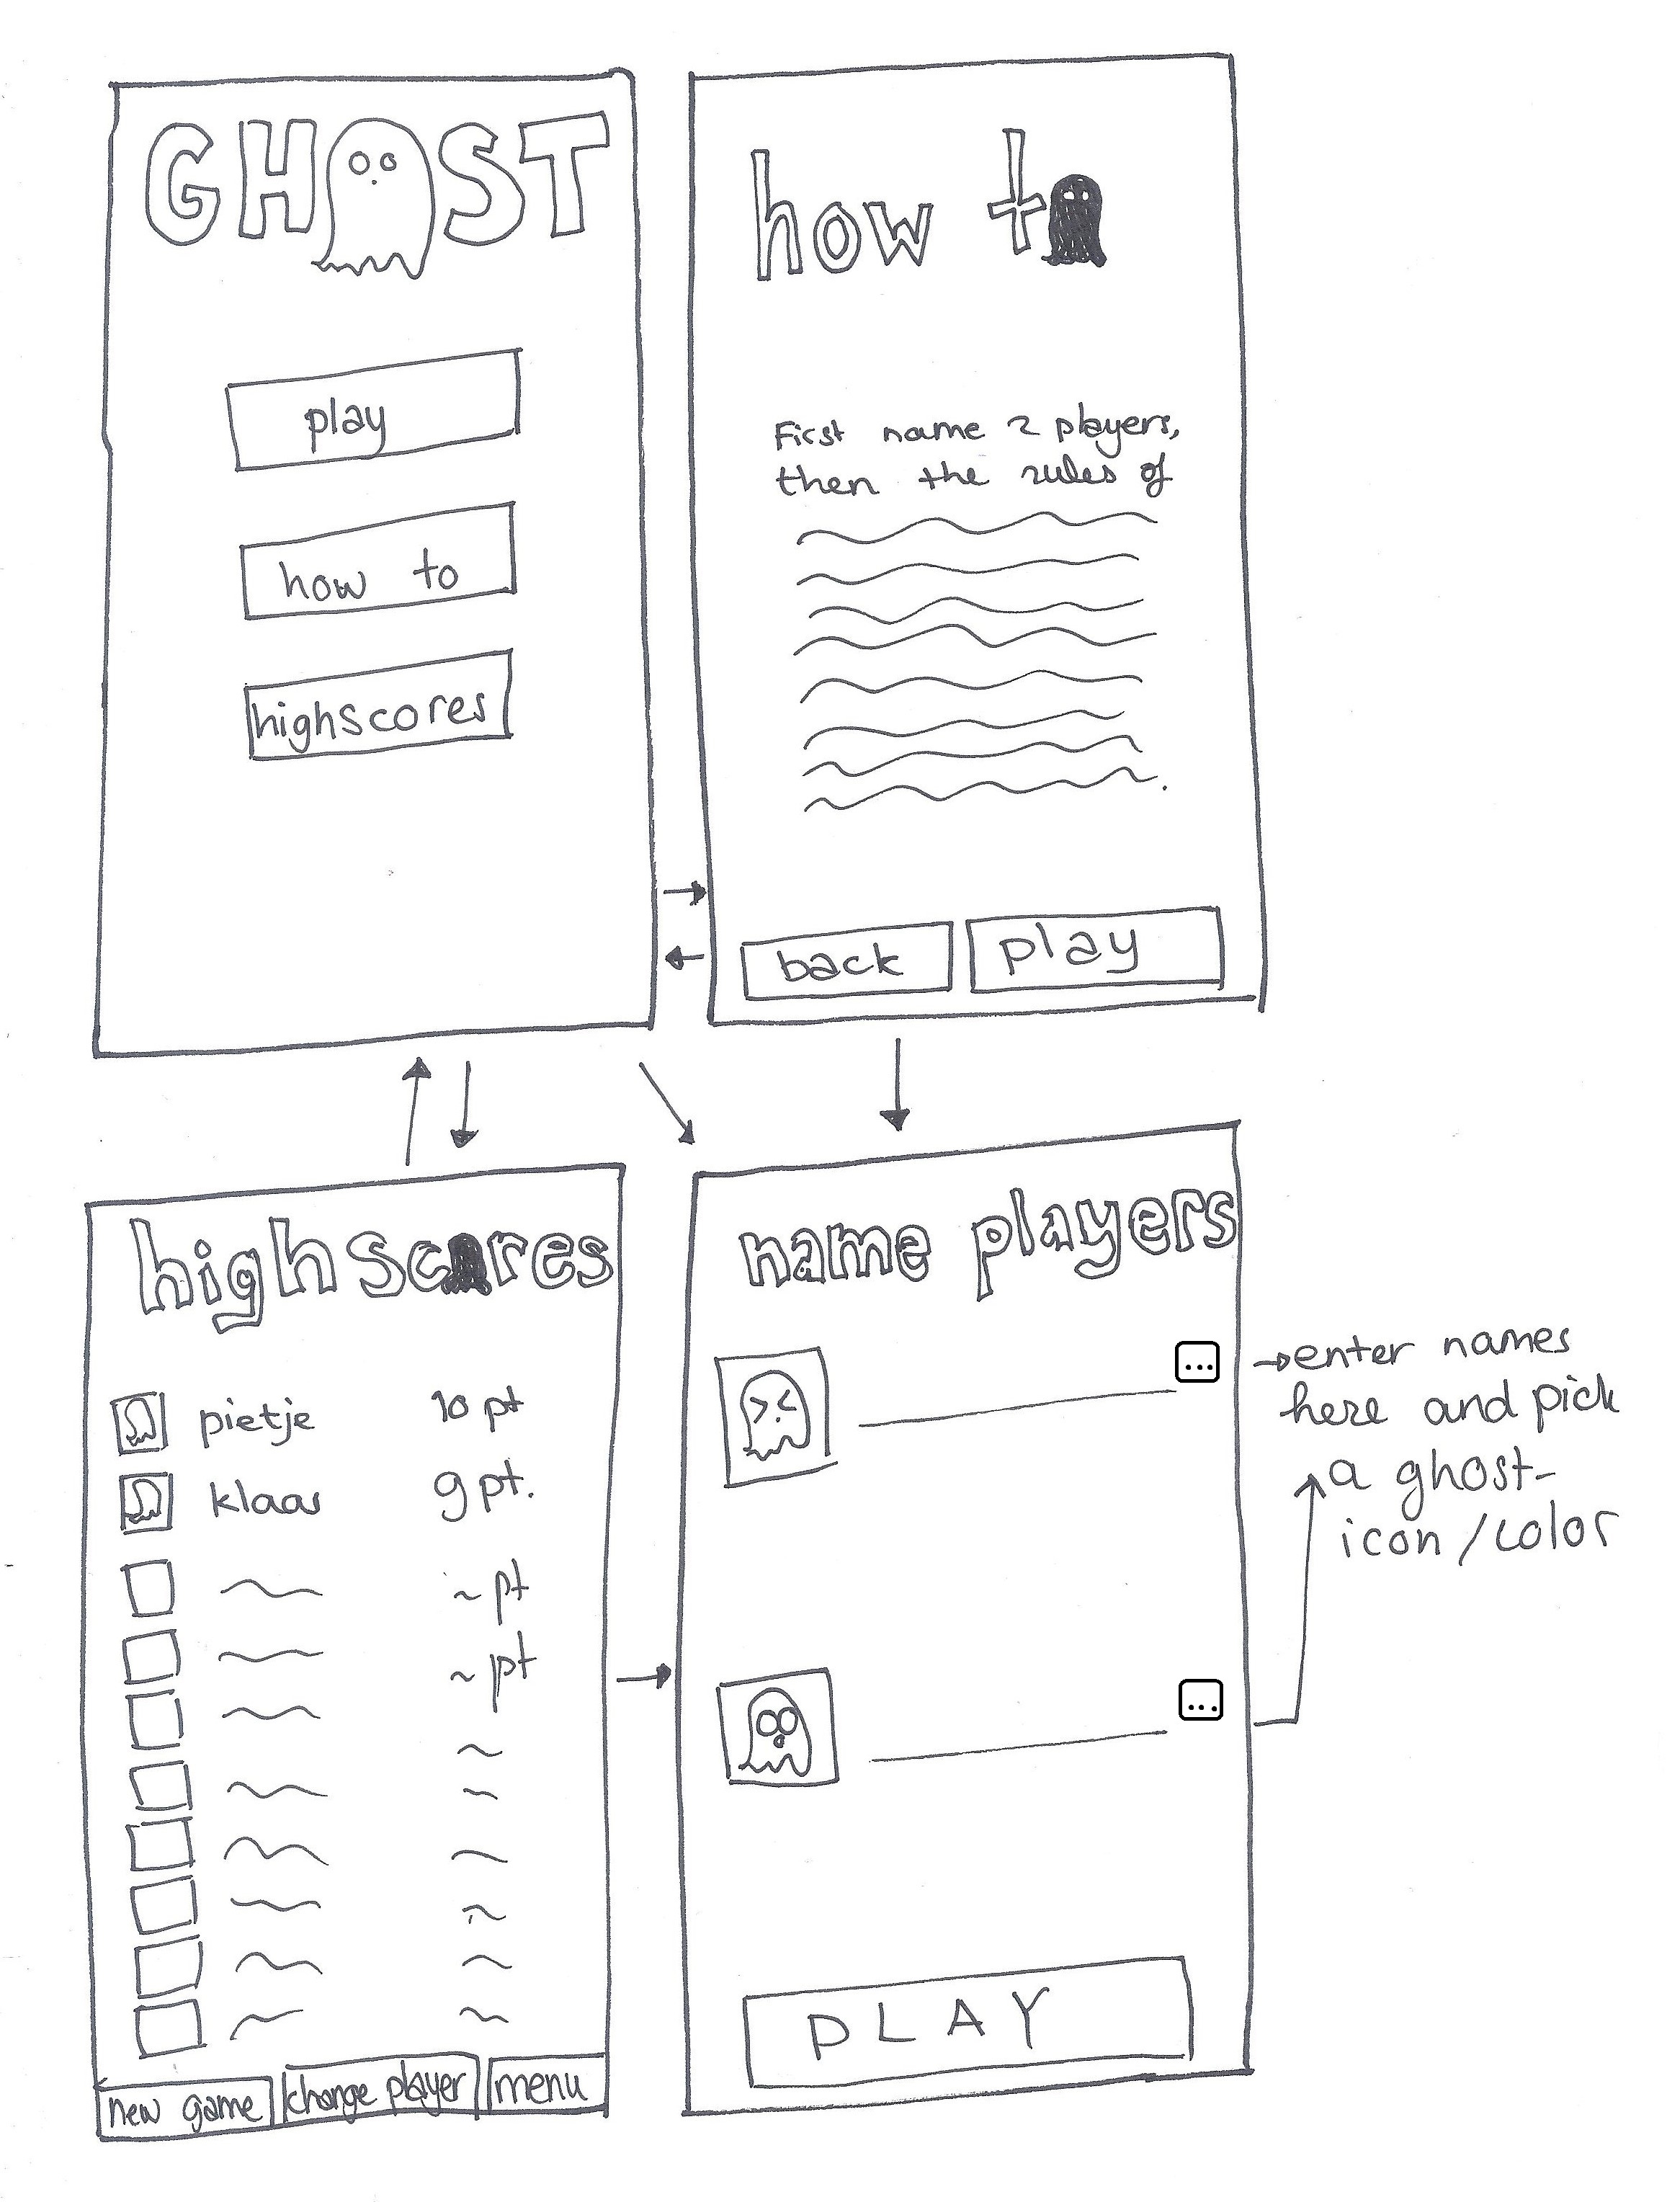 GHOST
play
how to
highscores
how to
First name 2 players,
then the rules of
back
play
highscores
pietje 10 pt
klaas 9 pt.
~ pt
~ pt
new game
change player
menu
name players
...
...
PLAY
→enter names
here and pick
a ghost-
icon/color